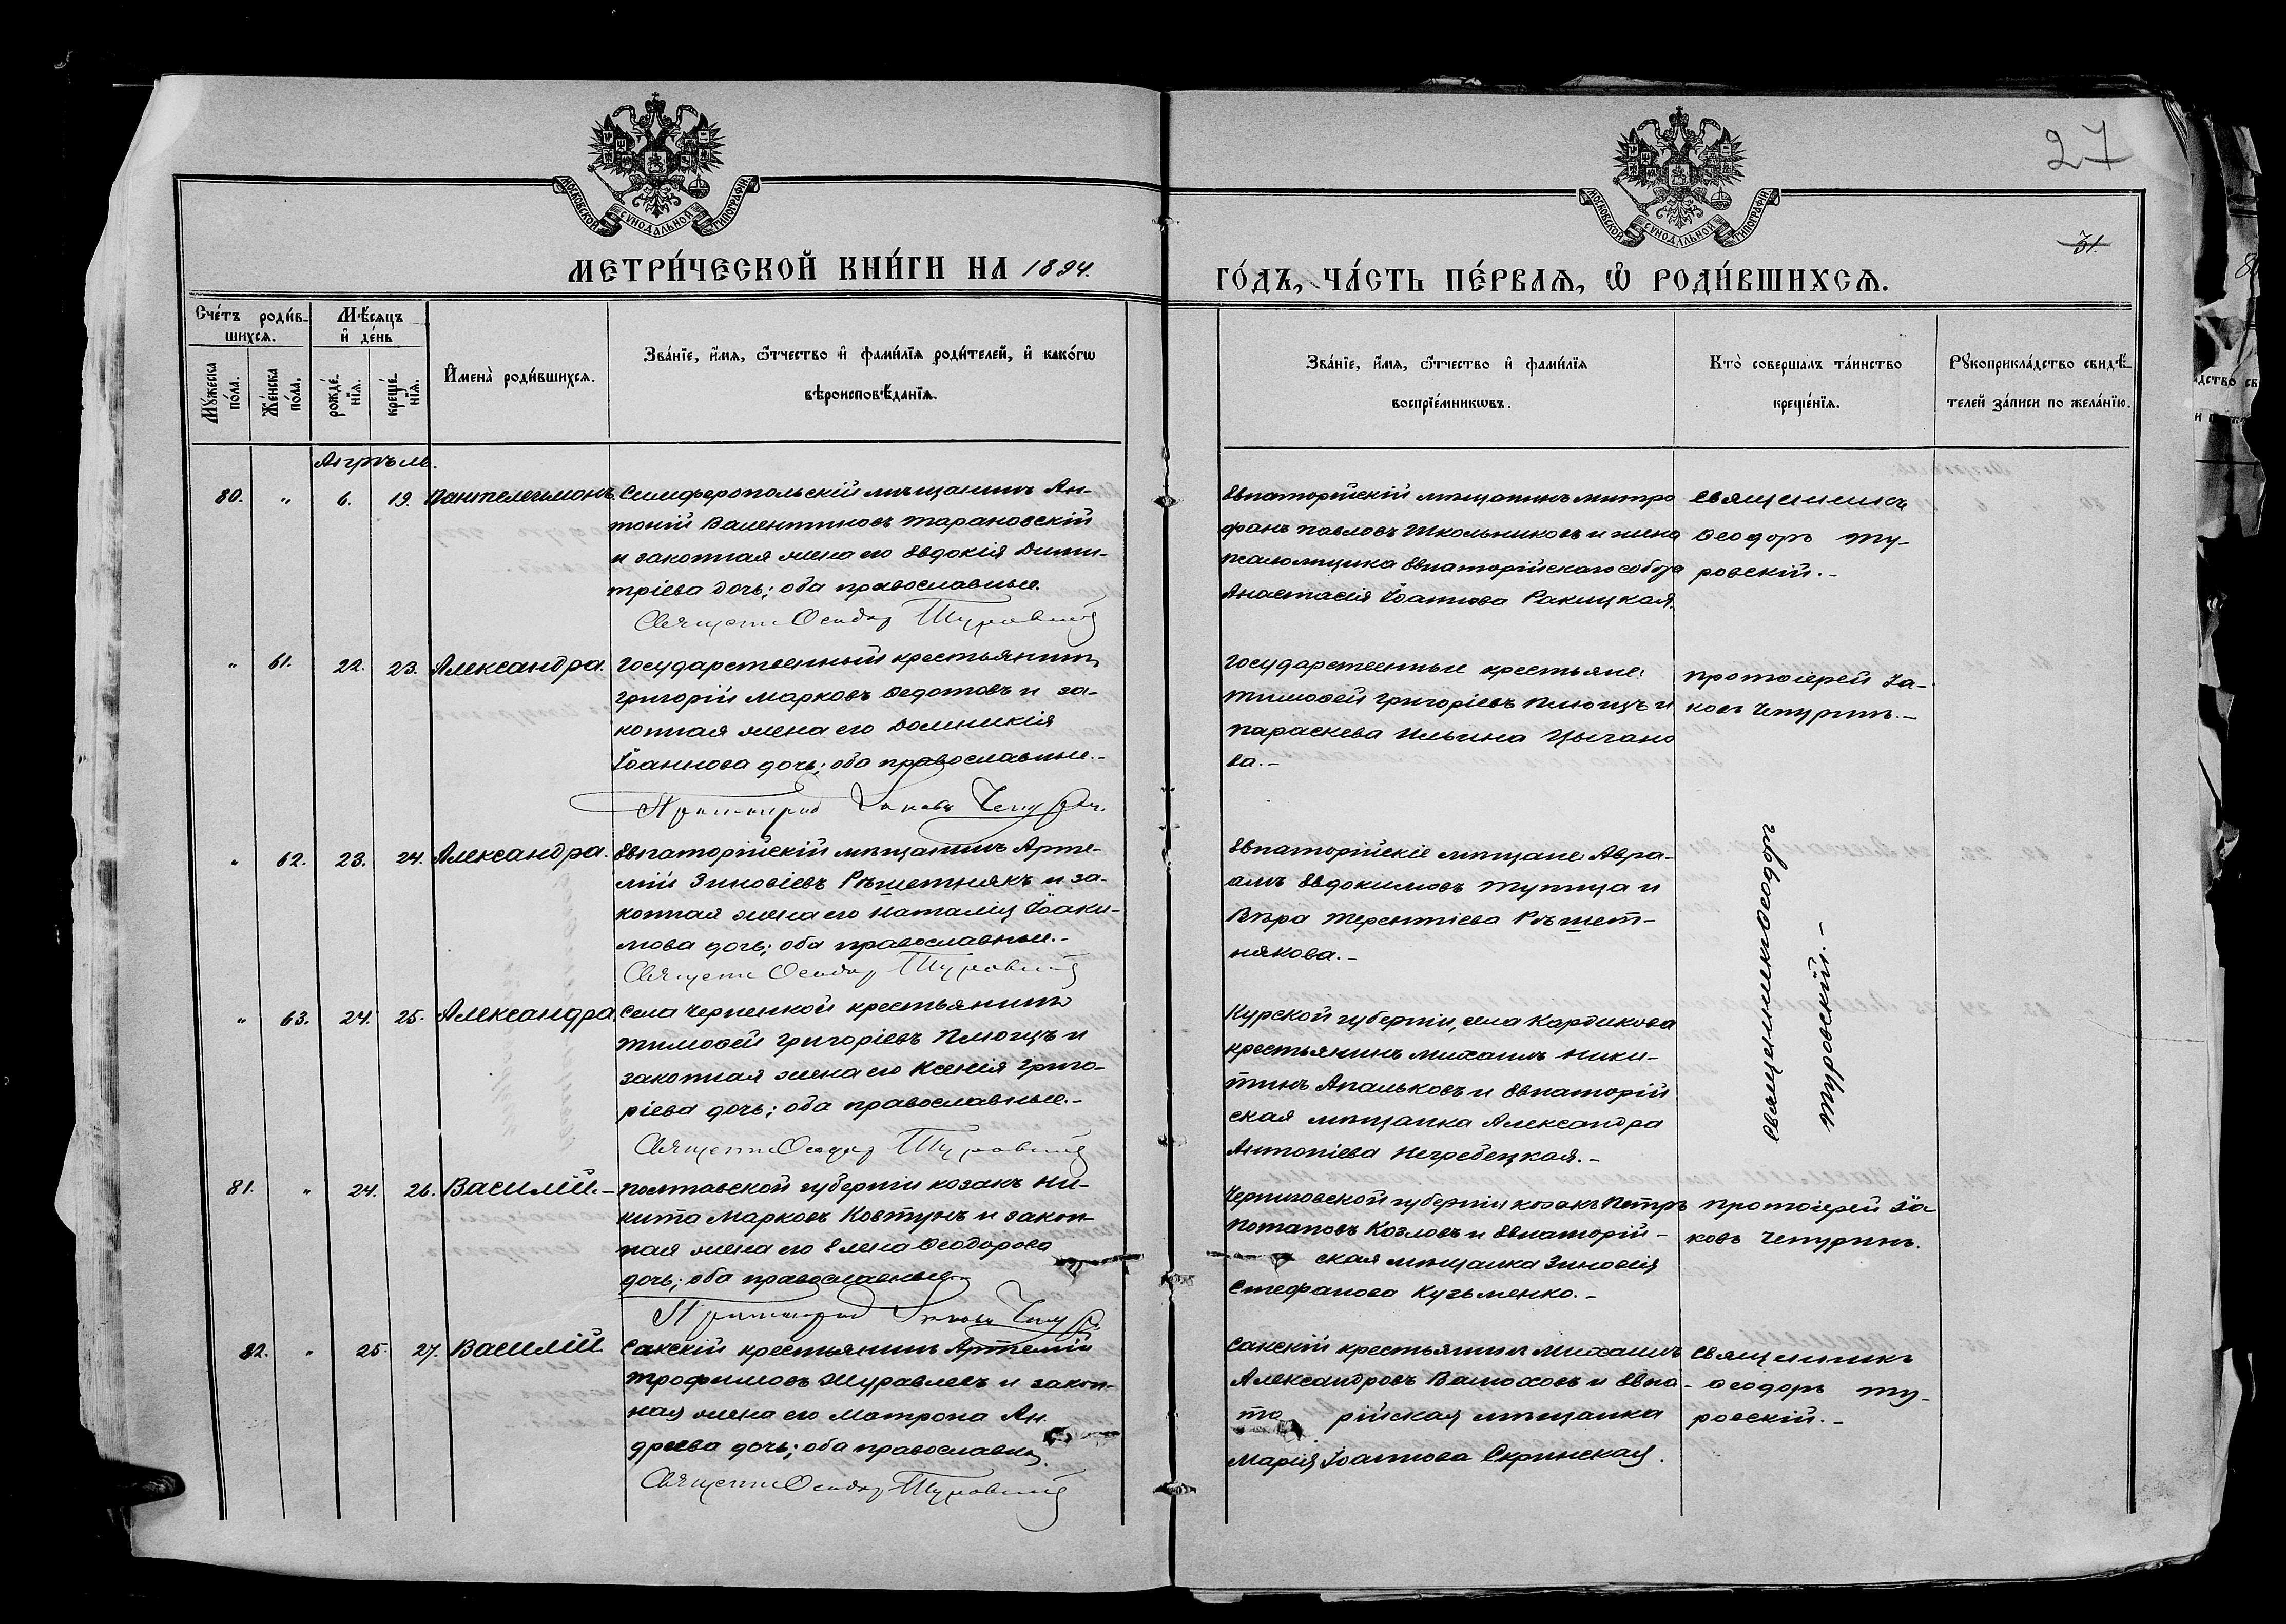 27
31.
МОСКОВСКОЙ СУНОДАЛЬНОЙ ТИПОГРАФІИ
МОСКОВСКОЙ СУНОДАЛЬНОЙ ТИПОГРАФІИ
МЕТРИ́ЧЕСКОЙ КНИ́ГИ НА 1894.
ГО́ДЪ, ЧА́СТЬ ПЕ́РВАѦ, Ѡ РОДИ́ВШИХСѦ.
Сче́тъ роди́в-
шихсѧ.
Мѣ́сяцъ
и҆ де́нь
Мꙋ́жеска
по́ла.
Же́нска
по́ла.
рожде́-
нїѧ.
креще́-
нїѧ.
И҆мена̀ роди́вшихсѧ.
Зва́нїе, и҆́мѧ, ѻ҆́тчество и҆ фами́лїѧ роди́телей, и҆ како́гѡ
вѣроисповѣ́данїѧ.
Зва́нїе, и҆́мѧ, ѻ҆́тчество и҆ фами́лїѧ
воспрїе́мникѡвъ.
Кто̀ совершалъ та́инство
креще́нїѧ.
Рꙋкоприкла́дство свидѣ́-
телей за́писи по жела́нїю.
Апрѣль.
80. " 6. 19. Пантелеимонъ
Симферопольскій мѣщанинъ Ан-
тоній Валентиновъ Тарановскій
и законная жена его Евдокія Дими-
тріева дочь; оба православные.
Священ Ѳеодор Туровскій
Евпаторійскій мѣщанинъ Митро
фанъ Павловъ Школьниковъ и жена
псаломщика Евпаторійскаго собора
Анастасія Іоаннова Ракицкая.
Священникъ
Ѳеодоръ Ту-
ровскій.-
" 61. 22. 23. Александра.
Государственный крестьянинъ
Григорій Марковъ Ѳедотовъ и за-
конная жена его Домникія
Іоаннова дочь; оба православные.-
Протоіерей Іаковъ Чепурин.
Государственные крестьяне:
Тимоѳей Григоріевъ Плющъ и
Параскева Ильина Цыгано
ва.-
Протоіерей Іа-
ковъ Чепуринъ.-
" 62. 23. 24. Александра.
Евпаторійскій мѣщанинъ Арте-
мій Зиновіевъ Рѣшетнякъ и за-
конная жена его Наталія Іоаки-
мова дочь; оба православные.-
Священ Ѳеодор Туровскій
Евпаторійскіе мѣщане Авра-
амъ Евдокимовъ Тупица и
Вѣра Терентіева Рѣшет-
някова.-
Священникъ Ѳеодоръ
Туровскій.-
" 63. 24. 25. Александра.
Села Черпенкой крестьянинъ
Тимоѳей Григоріевъ Плющъ и
законная жена его Ксенія Григо-
ріева дочь; оба православные.-
Священ Ѳеодор Туровскій
Курской губерніи, села Кардикова
крестьянинъ Михаилъ Ники-
тинъ Апальковъ и Евпаторій
ская мѣщанка Александра
Антоніева Негребецкая.-
81. " 24. 26. Василій.-
Полтавской губерніи козакъ Ни-
кита Марковъ Ковтунъ и закон-
ная жена его Елена Ѳеодорова
дочь; оба православные.-
Протоіерей Іаковъ Чепурин
Черниговской губерніи козакъ Петръ
Потаповъ Козловъ и Евпаторій-
ская мѣщанка Зиновія
Стефанова Кузьменко.-
Протоіерей Іа-
ковъ Чепуринъ.
82. " 25. 27. Василій
Сакскій крестьянинъ Артемій
Трофимовъ Журавлевъ и закон-
ная жена его Матрона Ан
дреева дочь; оба православн.
Священ Ѳеодор Туровскій
Сакскій крестьянинъ Михаилъ
Александровъ Валюховъ и Евпа-
то рійская мѣщанка
Марія Іоаннова Скринская.
Священникъ
Ѳеодоръ Ту-
ровскій.-